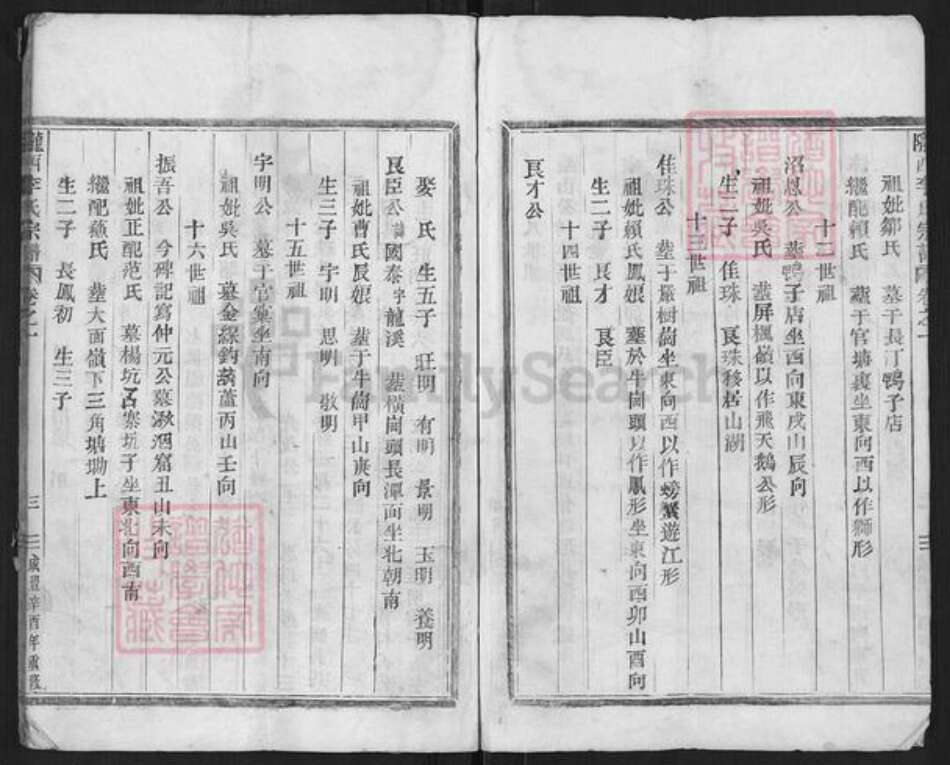 隴西李氏宗譜 卷之一
三
祖妣鄒氏 墓于長汀鴨子店
繼配賴氏 葬于官塘坐東向西以作獅形
十二世祖
沼恩公 葬鴨子店坐西向東戌山辰向
祖妣吳氏 葬屏楓嶺以作飛天鵝公形
生二子 佳珠 良珠移居山湖
十三世祖
佳珠公 葬于嚴樹崗坐東向西以作螃蟹遊江形
祖妣賴氏鳳娘 葬於牛崗頭以作鳳形坐東向西卯山酉向
生二子 良才 良臣
十四世祖
良才公
娶 氏 生五子 旺明 有明 景明 玉明 養明
良臣公諱國泰字龍溪 葬橫崗頭長潭面坐北朝南
祖妣曹氏辰娘 葬于牛崗甲山庚向
生三子 宇明 思明 敬明
十五世祖
宇明公 墓于官窠坐南向
祖妣吳氏 墓金線釣葫蘆丙山壬向
十六世祖
振吾公 今碑記寫仲元公墓湖窟丑山未向
祖妣正配范氏 墓楊坑石寨坑子坐東北向酉南
繼配蘇氏 葬大面嶺下三角塘坳上
生二子 長鳳初 生三子
隴西李氏宗譜 卷之一
三
咸豐辛酉年重修
FamilySearch